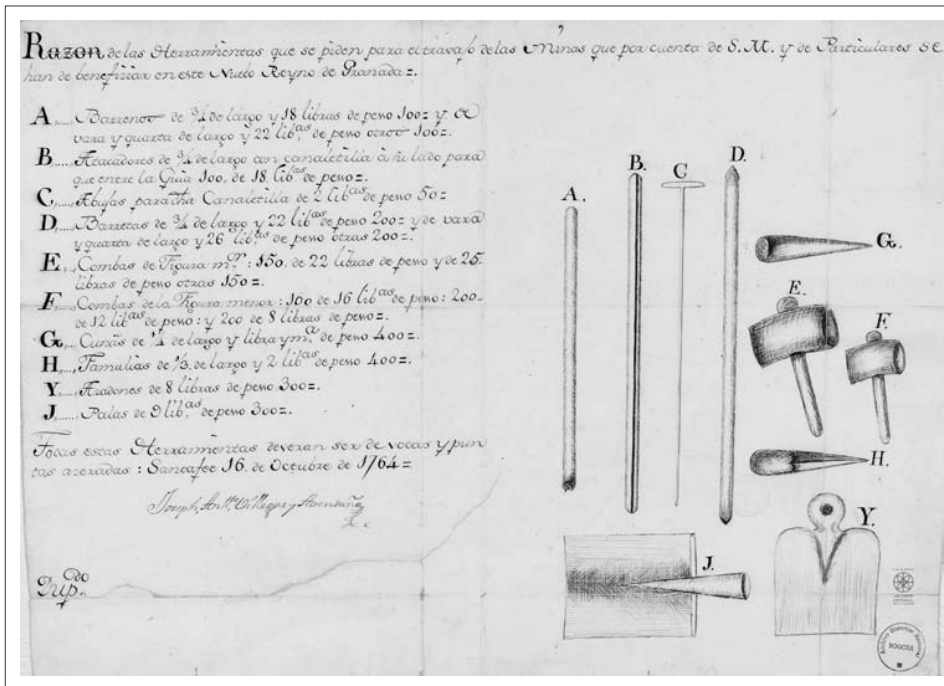 Razon de las Herramientas que se piden para el travajo de las Minas que por cuenta de S.M. y de Particulares se
han de benefiziar en este Nuebo Reyno de Granada=.
A,.... Barrenos de ¾ de largo y 18 libras de peso 100= y
vara y quarta de largo y 22 lib.as de peso otros 100=.
B..... Atacadores de ¾ de largo con canaletilla à un lado para
que entre la Guia 100, de 18 lib.as de peso=.
C,.... Abujas para dha Canaletilla de 2 lib.as de peso 50=
D,.... Barretas de ¾ de largo y 22 lib.as de peso 200= y de vara
y quarta de largo y 26 lib.as de peso otras 200=.
E,.... Combas de Figura m.or: 150, de 22 libras de peso y de 25
libras de peso otras 150=.
F,.... Combas de la Figura menor: 100 de 16 lib.as de peso: 200=
de 12 lib.as de peso: y 200 de 8 libras de peso=.
G,.... Cuñas de ¼ de largo y libra y m.a de peso 400=.
H,.... Famulias de ⅓, de largo y 2 lib.as de peso 400=.
Y,.... Azadones de 8 libras de peso 300=.
J,..... Palas de 9 lib.as de peso 300=.
Todas estas Herramientas deveran ser de vocas y pun
tas azeradas: Santafee 16, de Octubre de 1764=
Joseph Ant.o Villegas y
Dup.do
A.
B.
C
D.
G.
E.
F.
H.
Y.
J.
BOGOTA